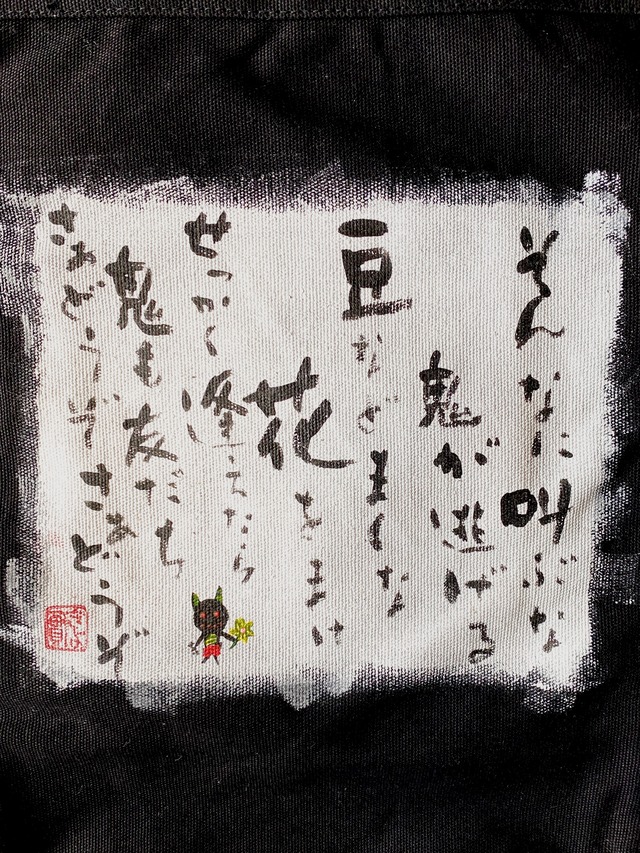 そんなに叫ぶな
鬼が逃げる
豆などまくな
花をまけ
せっかく逢えたなら
鬼も友だち
さあどうぞさあどうぞ